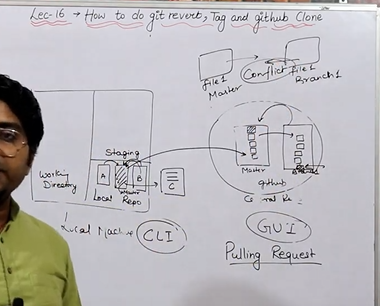 Lec-16 → How to do git reverb, Tag and github Clone
file1
Master
Conflict
file1
Branch1
Staging
Working
Directory
A
B
C
Local
Master
Repo
Local Machine
CLI
Master
github
GUI
Pulling Request